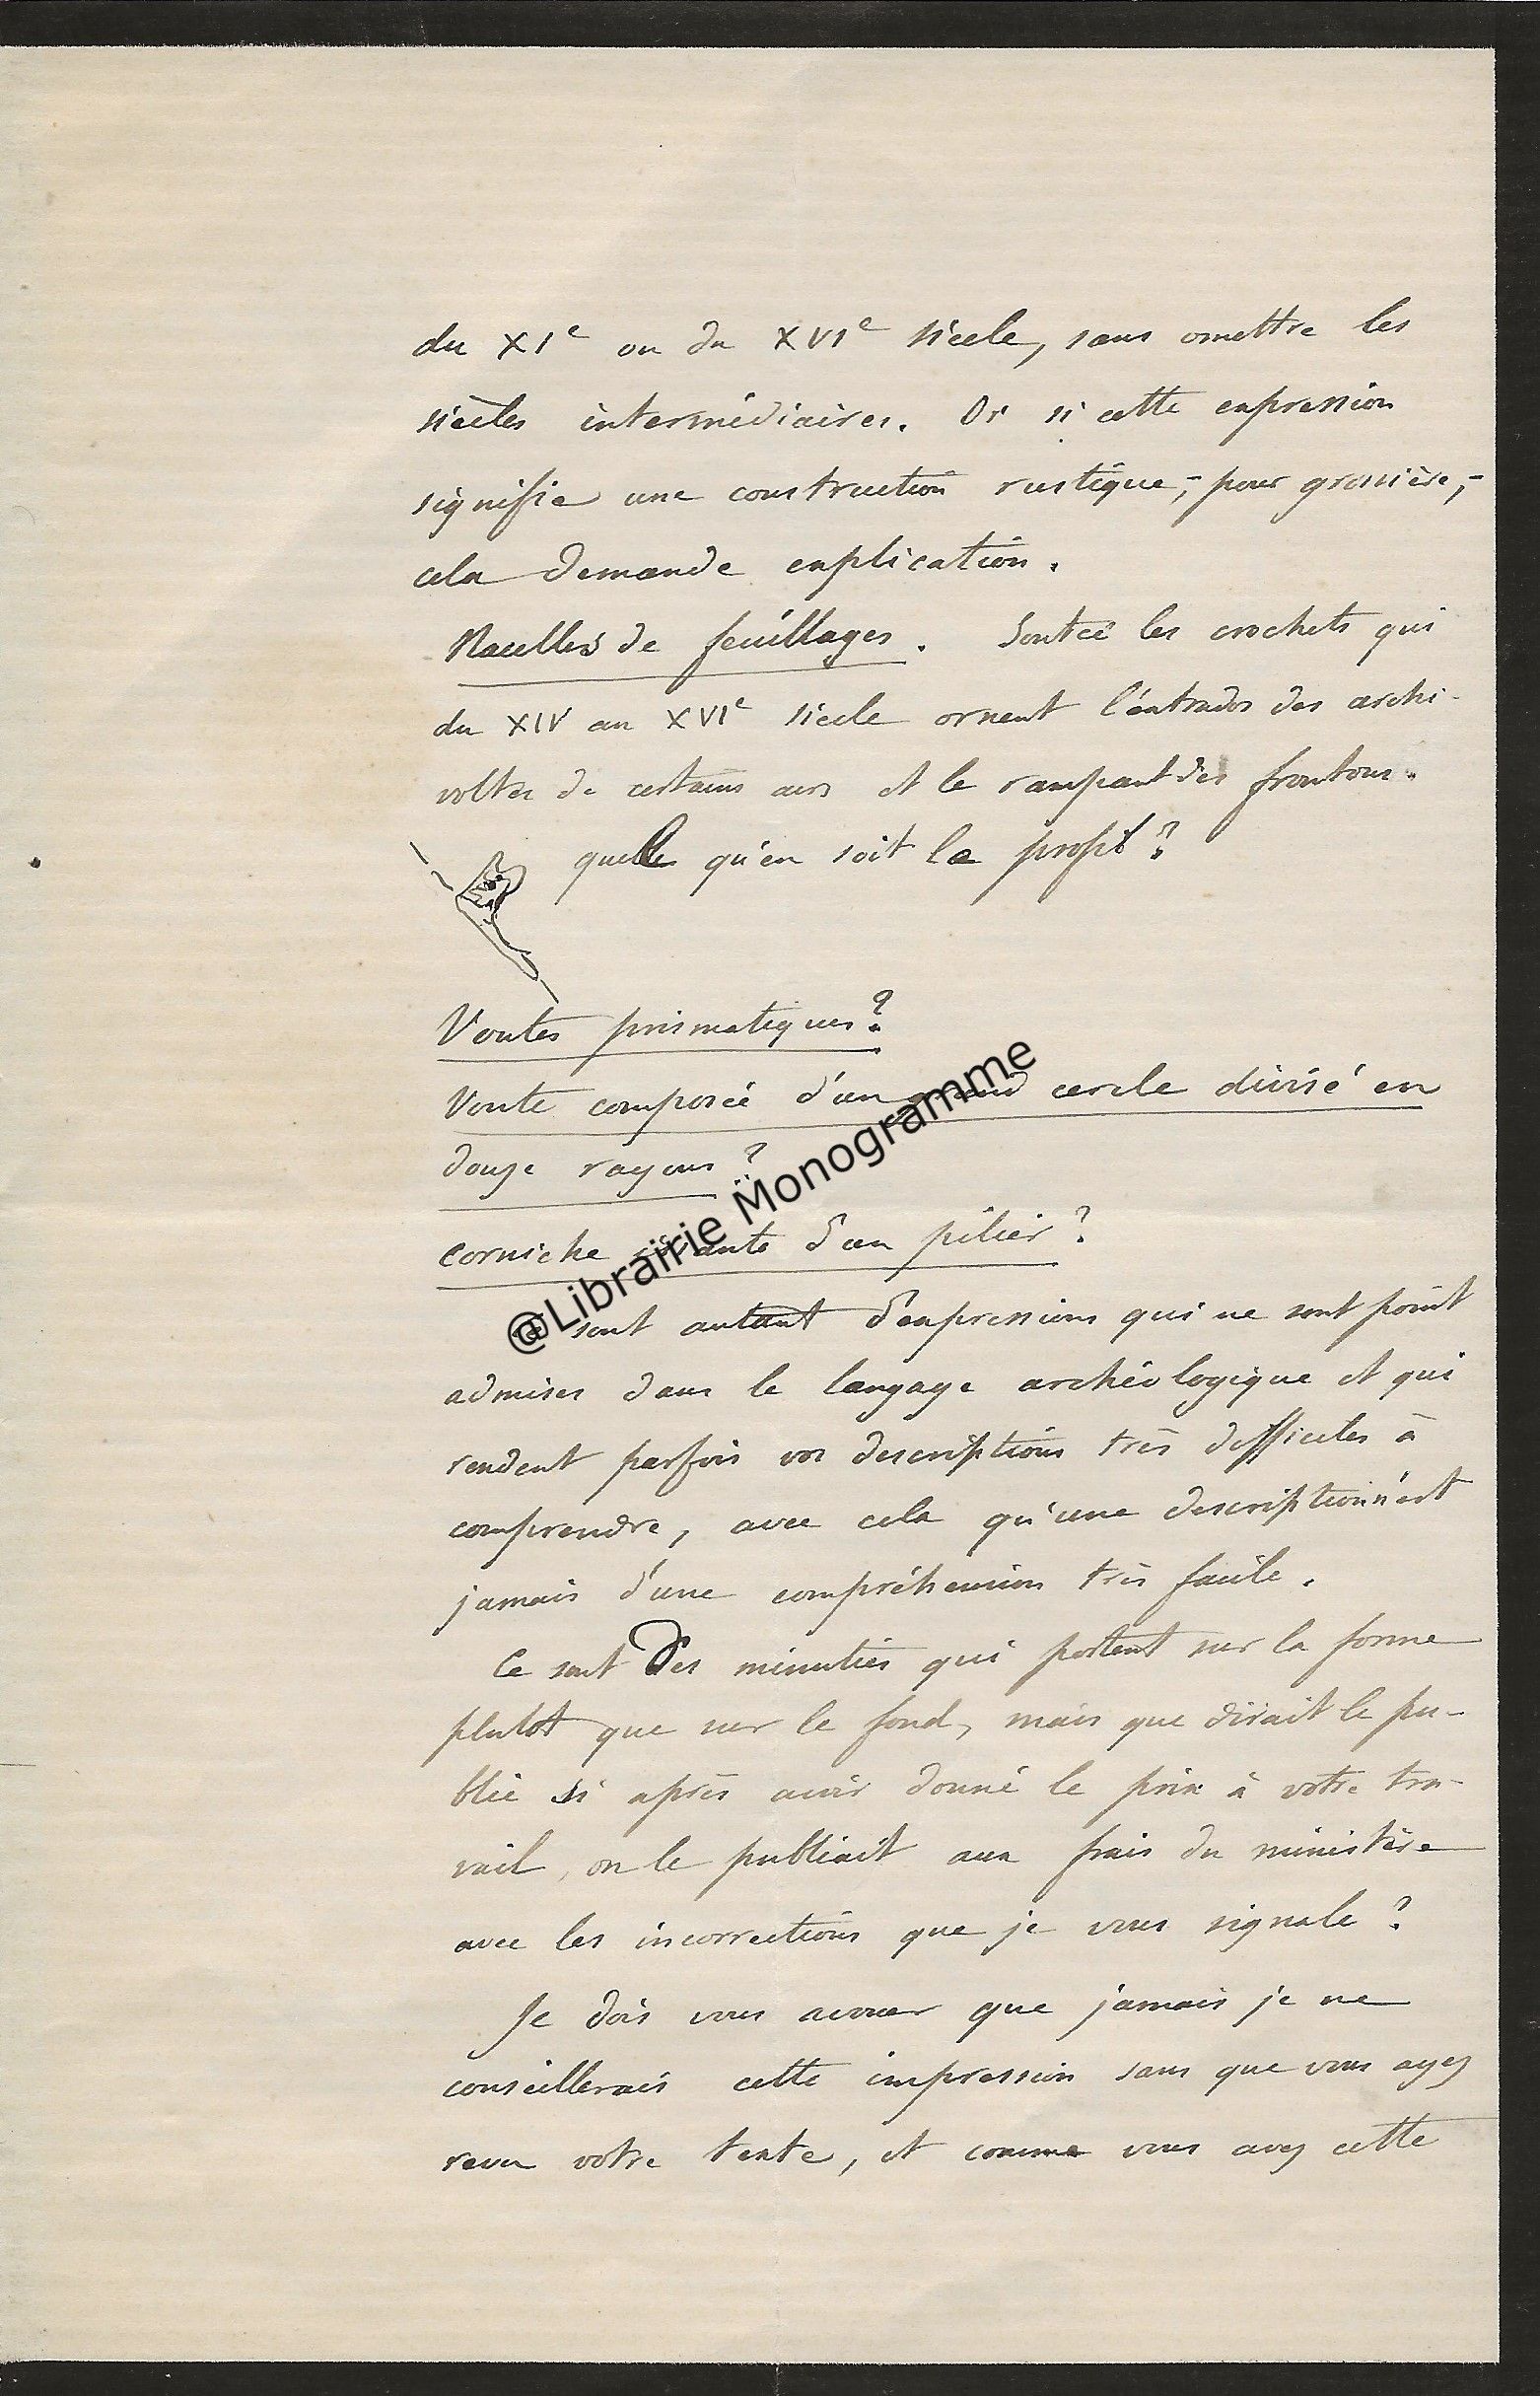 du XIe ou du XVIe siècle, sans omettre les
siècles intermédiaires. Or si cette expression
signifie une construction rustique, - pour grossière, -
cela demande explication.
Nacelles de feuillages. Sont ce les crochets qui
du XIV au XVIe siècle ornent l'extrados des archi-
voltes de certains arcs et le rampant des frontons.
quelle qu'en soit le profil?
Voutes prismatiques?
Voute composée d'un grand cercle divisé en
douze rayons?
Corniche d'un pilier?
Ce sont autant d'expressions qui ne sont point
admises dans le langage archéologique et qui
rendent parfois vos descriptions très difficiles à
comprendre, avec cela qu'une description n'est
jamais d'une compréhension très facile.
Ce sont des minuties qui portent sur la forme
plutot que sur le fond, mais que dirait le pu-
blic si après avoir donné le prix à votre tra-
vail, on le publiait aux frais du ministère
avec les incorrections que je vous signale?
Je dois vous avouer que jamais je ne
conseillerais cette impression sans que vous ayez
revu votre texte, et comme vous avez cette
@Librairie Monogramme